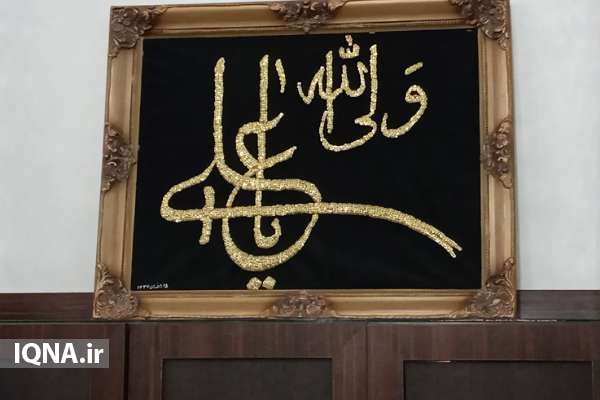 یا علی
ولی الله
IQNA.ir